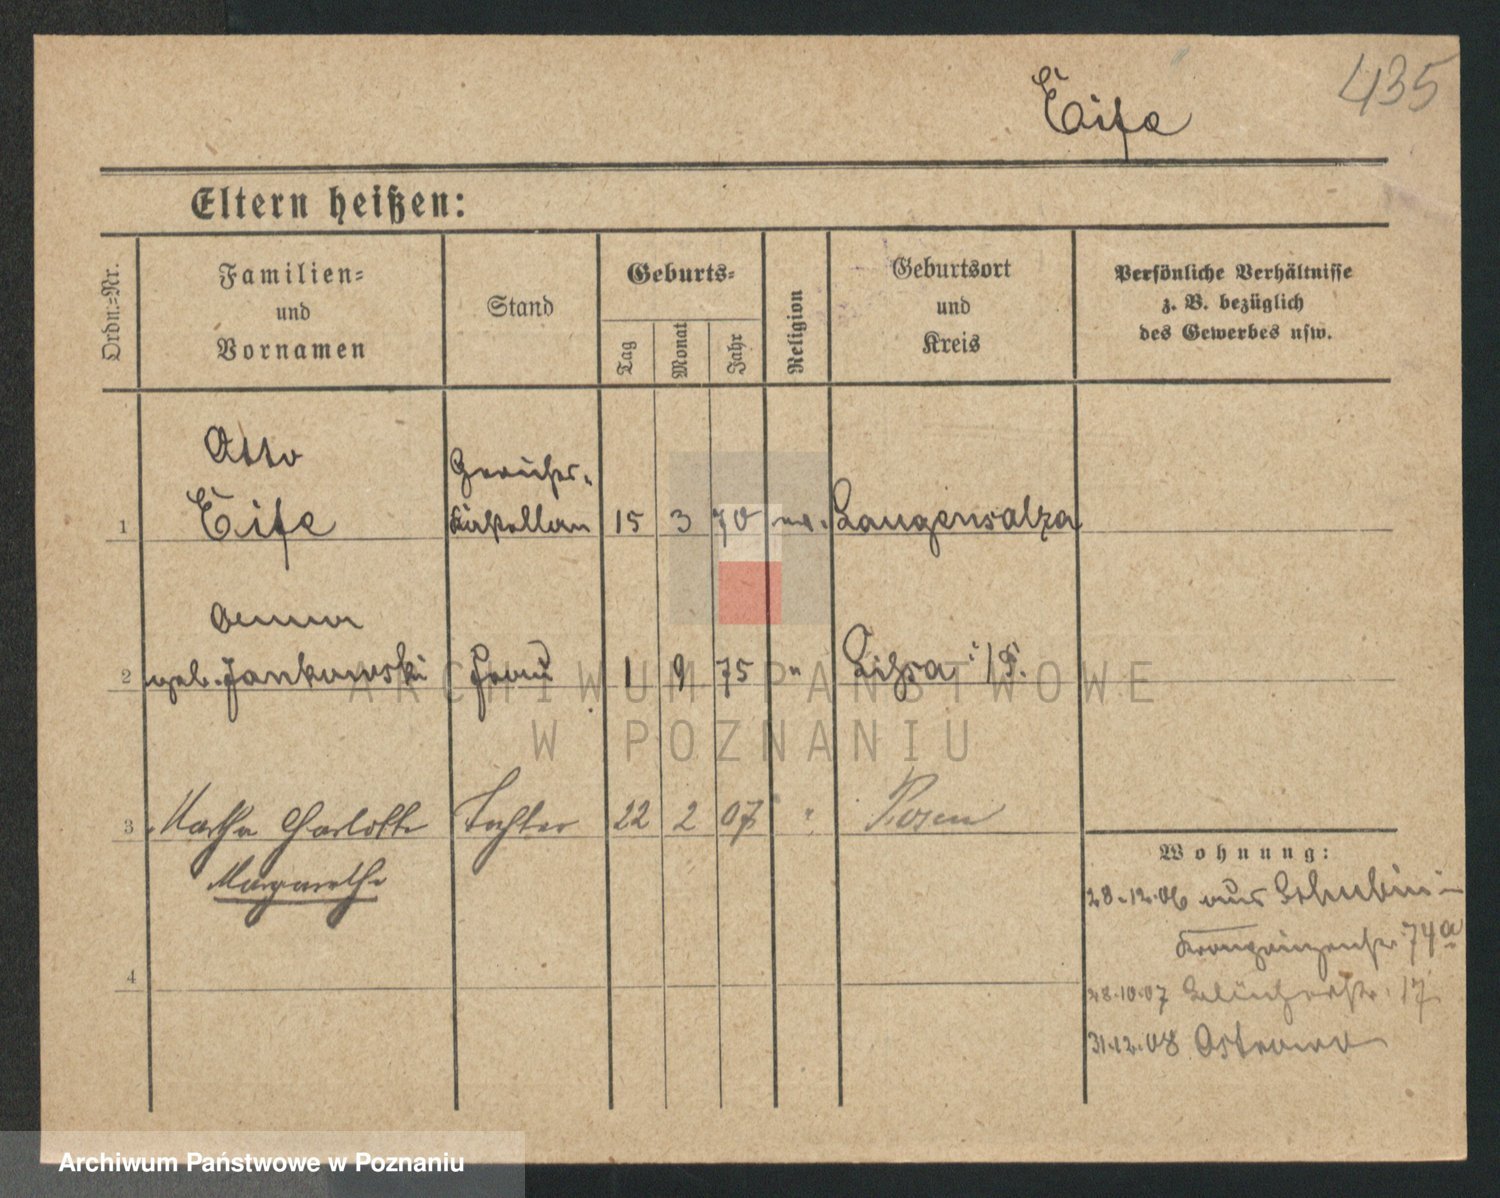 435
Eise
Eltern heißen:
Ordn.-Nr.
Familien-
und
Vornamen
Stand
Geburts-
Tag
Monat
Jahr
Religion
Geburtsort
und
Kreis
Persönliche Verhältnisse
z. B. bezüglich
des Gewerbes usw.
Otto
Gerichts-
1 Kastellan 15 3 70 ev. Langensalza
Anna
2 geb. Jankowski Frau 1 9 75 " Lissa i/P.
3 Martha Charlotte Tochter 22 2 07 " Posen
Margarethe
4
Wohnung:
28.12.06 aus Schubin -
Kronprinzenstr 74a
28.10.07 Blücherstr. 17.
31.12.08 Ostrowo
ARCHIWUM PAŃSTWOWE
W POZNANIU
Archiwum Państwowe w Poznaniu